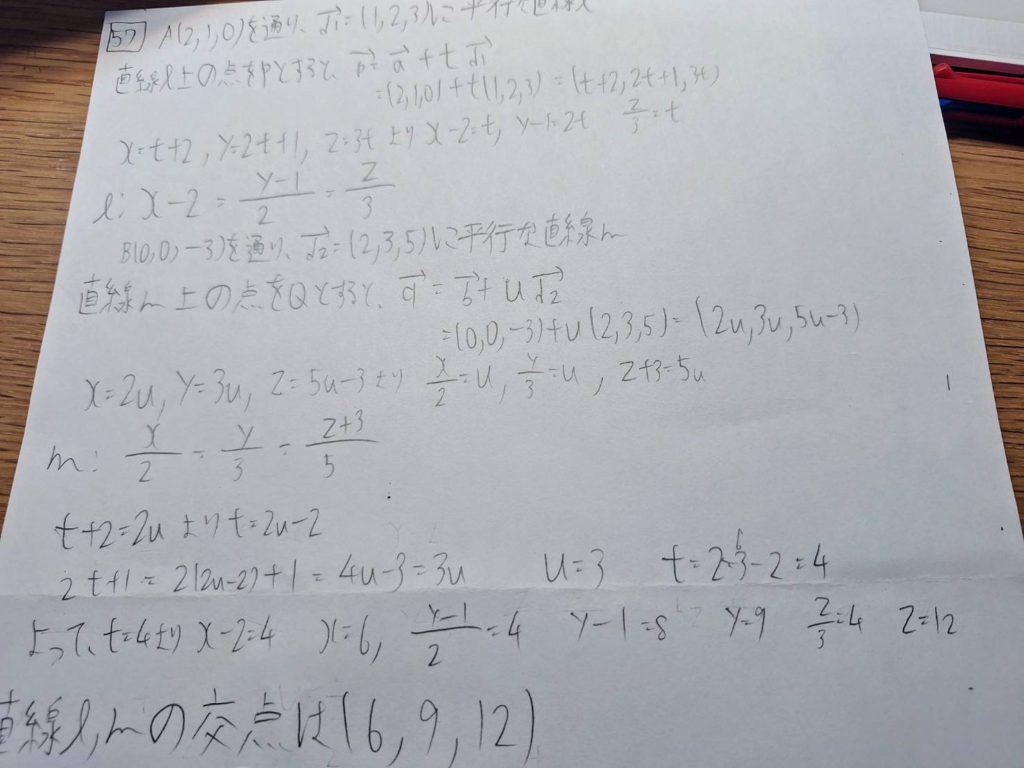 57 A(2,1,0)を通り、d₁=(1,2,3)に平行な直線
直線l上の点をPとすると、p=a+td₁
=(2,1,0)+t(1,2,3)=(t+2,2t+1,3t)
x=t+2, y=2t+1, z=3tより x-2=t, y-1=2t z/3=t
l: x-2=(y-1)/2=z/3
B(0,0,-3)を通り、d₂=(2,3,5)に平行な直線m
直線m上の点をQとすると、q=b+ud₂
=(0,0,-3)+u(2,3,5)=(2u,3u,5u-3)
x=2u, y=3u, z=5u-3より x/2=u, y/3=u, z+3=5u
m: x/2=y/3=(z+3)/5
t+2=2uよりt=2u-2
2t+1=2(2u-2)+1=4u-3=3u u=3 t=2·3-2=4
よって、t=4より x-2=4 x=6, (y-1)/2=4 y-1=8 y=9 z/3=4 z=12
直線l,mの交点は(6,9,12)